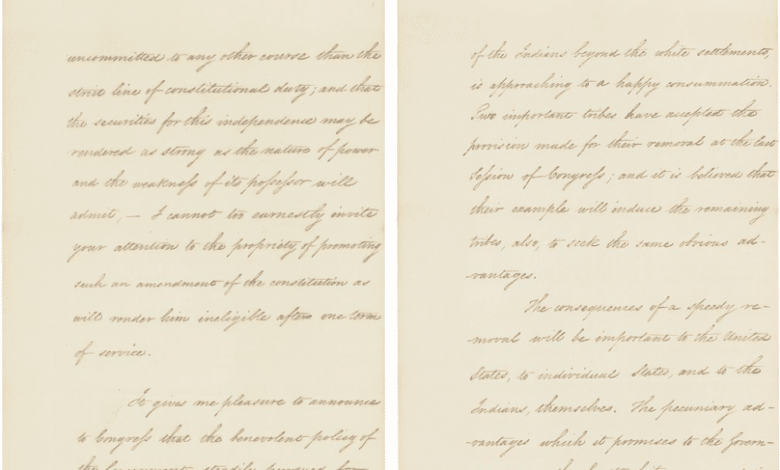 uncommitted to any other course than the
strict line of constitutional duty; and that
the securities for this independence may be
rendered as strong as the nature of power
and the weakness of its possessor will
admit, — I cannot too earnestly invite
your attention to the propriety of promoting
such an amendment of the constitution as
will render him ineligible after one term
of service.
It gives me pleasure to announce
to Congress that the benevolent policy of
the Government, steadily pursued for
of the Indians beyond the white settlements,
is approaching to a happy consummation.
Two important tribes have accepted the
provision made for their removal at the last
Session of Congress; and it is believed that
their example will induce the remaining
tribes, also, to seek the same obvious ad-
-vantages.
The consequences of a speedy re-
-moval will be important to the United
States, to individual States, and to the
Indians, themselves. The pecuniary ad-
-vantages which it promises to the Govern-